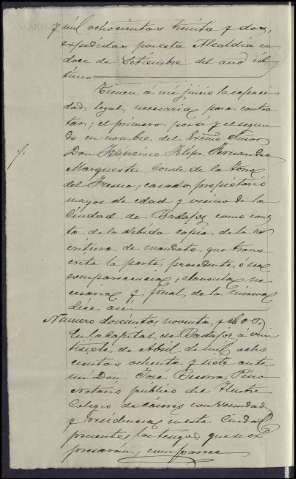 y mil ochocientos treinta y dos,
expedidas por esta Alcaldía en
doce de Setiembre del año úl-
timo.
Tienen a mi juicio la capaci-
dad legal necesaria para contra-
tar; el primero por sí y el segun-
do en nombre del Exmo Señor
Don Francisco Felipe Fernandez
Marquesta Conde de la Torre
del Fresno, casado, propietario
mayor de edad y vecino de la
Ciudad de Badajoz como cons-
ta de la debida copia de la es-
critura de mandato, que trans-
crita la parte precedente, o sea
comparecencia, clausulas ne-
cesarias y final, de la misma
dice así
Numero doscientos noventa y
En la Capital de Badajoz á vein
tisiete de Abril de mil ocho
cientos ochenta y siete ante
mi Don José
Notario público del Ilustre
Colegio de Cáceres con vecindad
y residencia en esta Ciudad
presentes los testigos que se ex
presarán, comparece